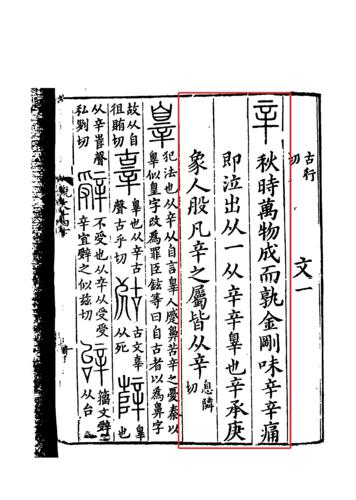 古行切
文一
辛 秋時萬物成而孰金剛味辛辛痛
即泣出从一从䇂䇂辠也辛承庚
象人股凡辛之屬皆从辛 息隣切
辠 犯法也从辛从自言辠人蹙鼻苦辛之憂秦以
辠似皇字改為罪臣鉉等曰自古者以為鼻字
故从自徂賄切 辜 辠也从辛古聲古乎切 古文辜从死 辥 辠也
从辛𡴎聲私列切 辤 不受也从辛从受受辛宜辤之似兹切 籒文辤从台